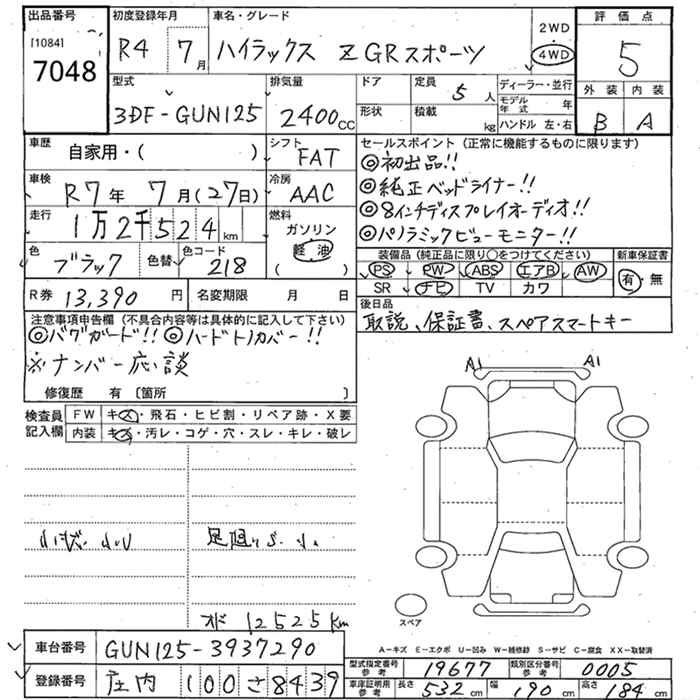 出品番号
[1084]
7048
初度登録年月
R4 7月
車名・グレード
ハイラックス Z GRスポーツ
2WD
4WD
評価点
5
型式
3DF-GUN125
排気量
2400cc
ドア
定員
5人
形状
積載
kg
ディーラー・並行
モデル年式 年
ハンドル 左・右
外装
内装
B
A
車歴
自家用・( )
シフト
FAT
車検
R7年 7月(27日)
冷房
AAC
走行
1万2千524km
燃料
ガソリン
軽油
( )
色
ブラック
色替
色コード
218
R券
13,390円
名変期限 月 日
セールスポイント (正常に機能するものに限ります)
◎初出品!!
◎純正ベッドライナー!!
◎8インチディスプレイオーディオ!!
◎パノラミックビューモニター!!
装備品 (純正品に限り○をつけてください)
新車保証書
PS PW ABS エアB AW
SR ナビ TV カワ
有・無
後日品
取説、保証書、スペアスマートキー
注意事項申告欄 (不具合内容等は具体的に記入して下さい)
◎バグガード!! ◎ハードトノカバー!!
※ナンバー応談
修復歴 有 〔箇所 〕
検査員記入欄
FW キズ・飛石・ヒビ割・リペア跡・X要
内装 キズ・汚レ・コゲ・穴・スレ・キレ・破レ
A1 A1
オド 12525km
スペア
A−キズ E−エクボ U−凹み W−補修跡 S−サビ C−腐食 XX−取替済
車台番号
GUN125-3937290
登録番号
庄内 100 さ 8439
型式指定番号 参考
19677
類別区分番号 参考
0005
車庫証明用 参考
長さ 532cm 幅 190cm 高さ 184cm